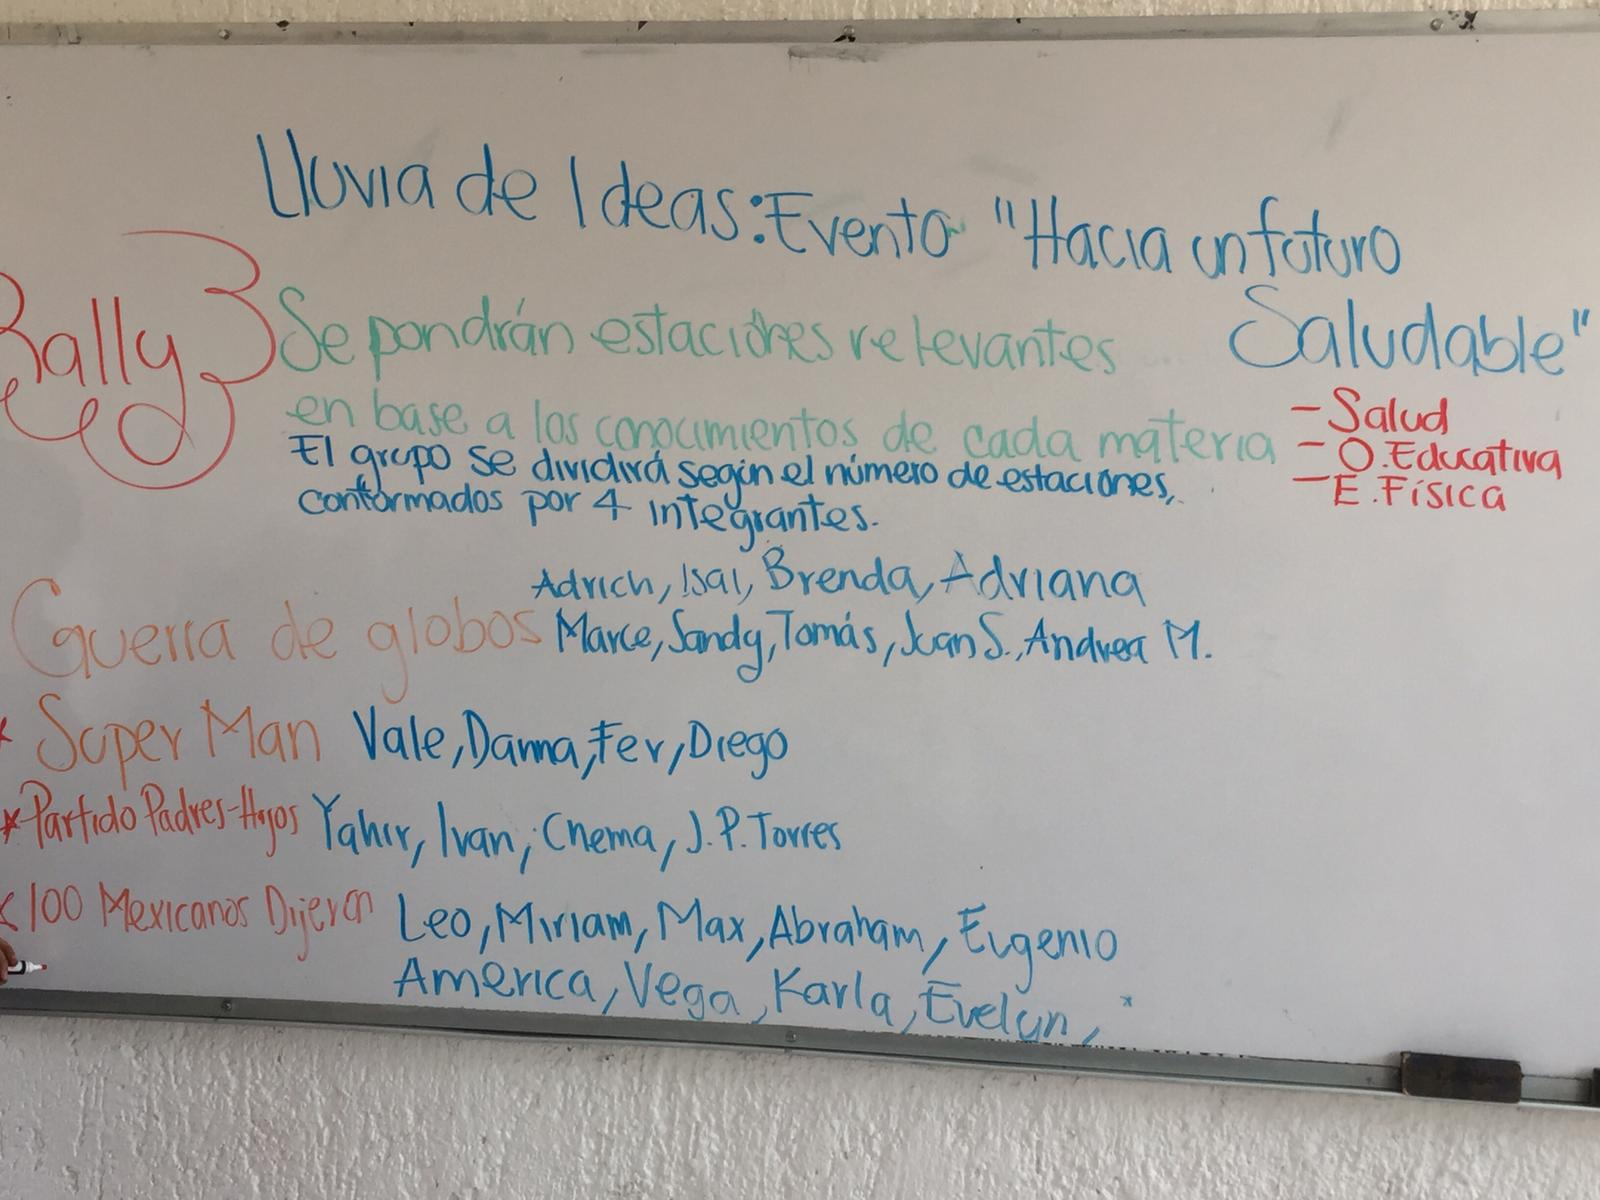 Lluvia de Ideas: Evento "Hacia un futuro
Saludable"
Rally
Se pondrán estaciones relevantes
en base a los conocimientos de cada materia
- Salud
- O. Educativa
- E. Física
El grupo se dividirá según el número de estaciones,
conformados por 4 integrantes.
Adrich, Isai, Brenda, Adriana
Guerra de globos Marce, Sandy, Tomás, Juan S., Andrea M.
* Super Man Vale, Danna, Fer, Diego
* Partido Padres-Hijos Yahir, Ivan, Chema, J.P. Torres
* 100 Mexicanos Dijeron Leo, Miriam, Max, Abraham, Eugenio
America, Vega, Karla, Evelyn,